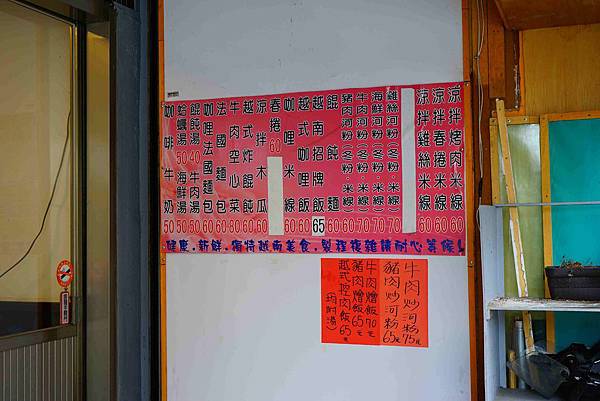 涼拌烤肉米線 60
涼拌春捲米線 60
涼拌雞絲米線 60
雞絲河粉(冬粉·米線) 70
海鮮河粉(冬粉·米線) 70
牛肉河粉(冬粉·米線) 70
豬肉河粉(冬粉·米線) 60
餛飩麵 60
越南招牌飯 65
越式咖哩飯 60
咖哩米線 60
春捲 60
涼拌木瓜 60
越式炸餛飩 60
牛肉空心菜 80
法國麵包
咖哩法國麵包 60
餛飩湯 40 牛肉湯 50
蛤蠣湯 50 海鮮湯 50
咖啡牛奶 50
健康.新鮮.獨特越南美食.製程複雜請耐心等候!
牛肉炒河粉75元
豬肉炒河粉65元
牛肉燴飯70元
豬肉燴飯65元
越式控肉飯65元
均附湯